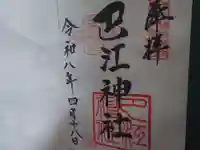 奉拝
巴江神社
令和八年四月十八日